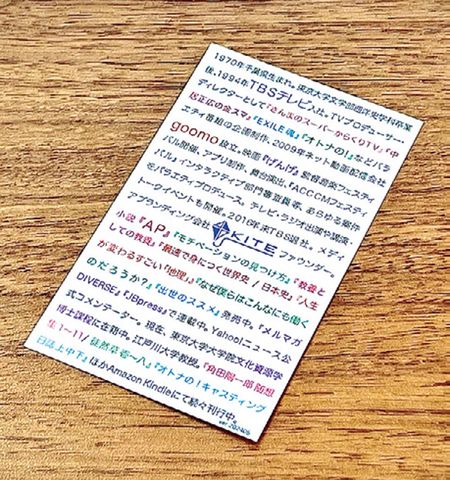 1970年千葉県生まれ。東京大学文学部西洋史学科卒業
後、1994年TBSテレビ入社。TVプロデューサー、
ディレクターとして『さんまのスーパーからくりTV』『中
居正広の金スマ』『EXILE魂』『オトナの!』などバラ
エティ番組の企画制作、2009年ネット動画配信会社
goomo設立。映画『げんげ』監督音楽フェスティ
バル開催、アプリ制作、舞台演出、『ACC CMフェスティ
バル』インタラクティブ部門審査員等、あらゆる案件
をバラエティプロデュース。テレビ・ラジオ出演や講演、
トークイベントも開催。2016年末TBS退社。メディ
アプランティング会社 KITE ファウンダー。
小説『AP』『モチベーションの見つけ方』『教養と
しての教養』『最速で身につく世界史/日本史』『人生
が変わるすごい「地理」』『なぜ僕らはこんなにも働く
のだろうか?』『出世のススメ』発売中。『メルマガ
DIVERSE』『JBpress』で連載中。Yahoo!ニュース公
式コメンテーター。現在、東京大学大学院文化資源学
博士課程に在籍中。江戸川大学教授。『角田陽一郎 随想
集1〜11/徒然草壱〜八』『オトナの!キャスティング
日誌 上中下』ほかAmazon Kindleにて続々刊行中。
ver. 202406